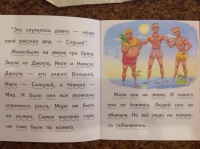 "Это случилось давно — начал
свой рассказ дед
Жили-были на земле три брата.
Звали их Данула, Инга и Номуга.
Данула — это значит Большой,
Инга — Сильный, а Номуга —
Мир. И были они все великаны
огромного роста. Море им было
по колено. Самые высокие горы
им тоже были по колено.
Жили они на земле. И никого
они не боялись. Людей они не
обижали. Но все люди их почему-
то побаивались.